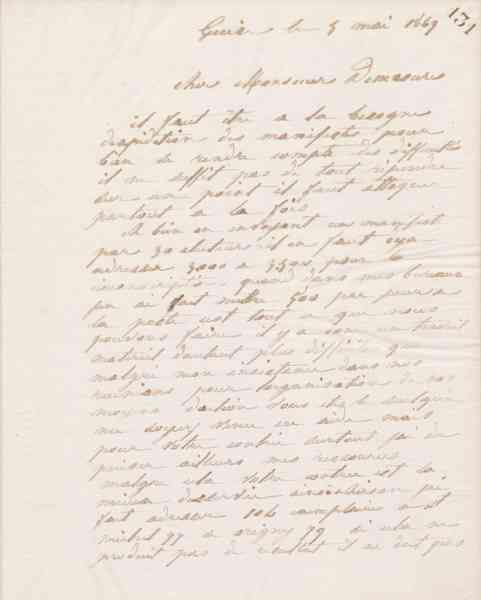 131
Guise le 5 mai 1869
cher Monsieur Demasure
il faut être a la besogne
d'expédition des manifestes pour
bien se rendre compte des difficultés
il ne suffit pas de tout répandre
sur un point il faut attaquer
partout a la fois
Et bien en envoyant un manifeste
par 30 électeurs il en faut
adresser 3000 a 3500 pour la
circonscription quand dans mes bureaux
on a fait mettre 500 par jour a
la poste est tout ce que nous
pouvons faire il y a donc un travail
matériel d'autant plus difficile que
malgré mon insistance dans nos
reunions pour l'organisation de nos
moyens d'action vous etes le seul qui
me soyez venu en aide mais
pour votre contrée surtout j'ai du
puiser ailleurs mes ressources
malgré cela votre contrée est la
mieux desservie ai
fait adresser 104 exemplaires a st
michel 97 a origny 79 si cela ne
produit pas de résultat il ne doit pas